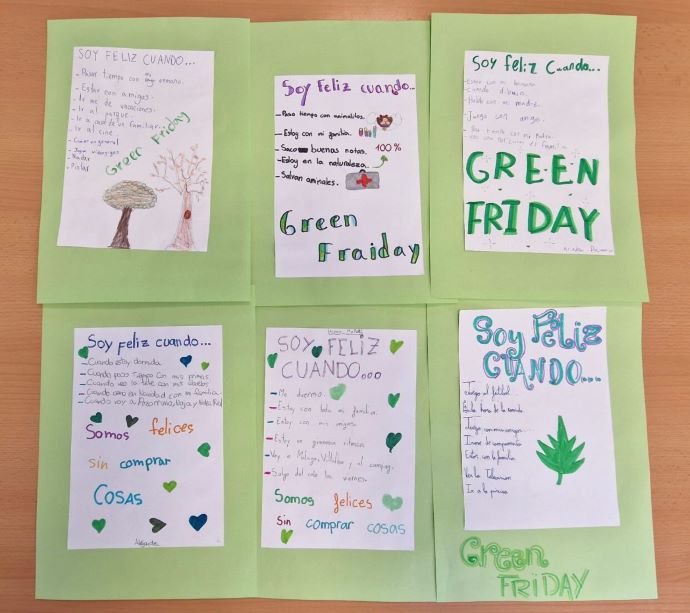 SOY FELIZ CUANDO...
- Pasar tiempo con mi hermano.
- Estar con amigos.
- Irme de vacaciones.
- Ir al parque.
- Ir a casa de un familiar.
- Ir al cine.
- Comer en general
- Jugar videojuegos
- Nadar
- Pintar
Green Friday
Soy Feliz cuando...
- Paso tiempo con animalitos.
- Estoy con mi familia.
- Saco buenas notas. 100%
- Estoy en la naturaleza.
- Salvan animales.
Green
Fraiday
Soy Feliz Cuando...
- Estoy con mi hermano
cuando dibujo.
- Hablo con mi madre.
- Juego con amigos.
GREEN
FRIDAY
Soy feliz cuando...
- Cuando estoy dormida
- Cuando paso tiempo con mis primas
- Cuando veo la tele con mis abuelos
- Cuando ceno en Navidad con mi familia
- Cuando voy a
Somos felices
sin comprar
COSAS
SOY FELIZ
CUANDO...
- Me duermo.
- Estoy con toda mi familia.
- Estoy con mis amigos
- Estoy en gimnasia rítmica
- Voy a Málaga, Villalba y al camping.
- Salgo del cole los viernes.
Somos felices
Sin comprar cosas
Soy Feliz
CUANDO...
Juego al futbol
Es la hora de la comida
Juego con mis amigos
Irme de campamento
Estar con la familia
Ver la Televisión
Ir a la piscina
Green
FRiDAY